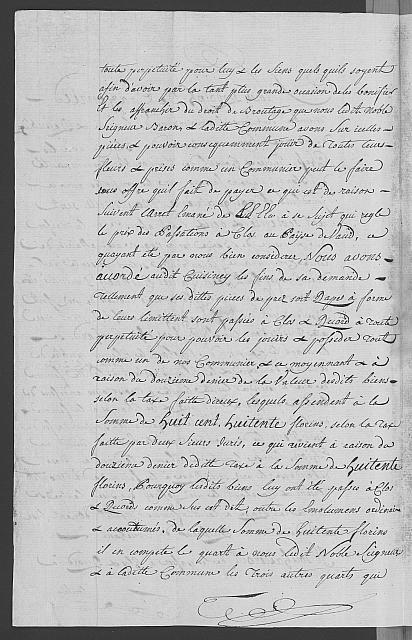 toute perpetuité pour luy & les Siens quels quils soyent
afin d'avoir par la tant plus grande occasion de les bonifier
Et les affranchir du droit de Broutage que nous ledit Noble
Seigneur Baron, & ladite Commune avons sur icelles
pieces, & pouvoir consequemment jouir de toutes leurs
fleurs & prises comme un Communier peut le faire
sous offre qu'il fait de payer ce qui est de raison
Suivant l'Aret Emané de LL EEces à ce Sujet qui regle
le prix des Passations à Clos au Païs de Vaud, ce
qu'ayant eté par nous bien considerer, Nous avons
accordé audit Cuisiney les fins de sa demande
tellement que ses dittes pieces de pré, soit Rapes à forme
de leurs limittent sont passées à Clos & Record à toute
perpetuité pour pouvoir les jouir & posseder tout
comme un de nos Communier & ce moyennant & à
raison du douzieme denier de la Valeur desdits biens
selon la taxe faitte d'iceux, lesquels, assendent à la
Somme de Huit Cent, Huitente florins, selon la Tax
faitte par deux Sieurs Juris, ce qui revient à raison du
douzieme denier deditte Taxe à la Somme de Huitente
florins, Pourquoy lesdits biens luy ont été passés à Clos
& Record comme sus est dit, outre les Emolumens ordinaires
& accoutumés, de laquelle Somme de huitente florins
il en compete le quart à nous ledit Noble Seigneur
& à laditte Commune les Trois autres quarts qui